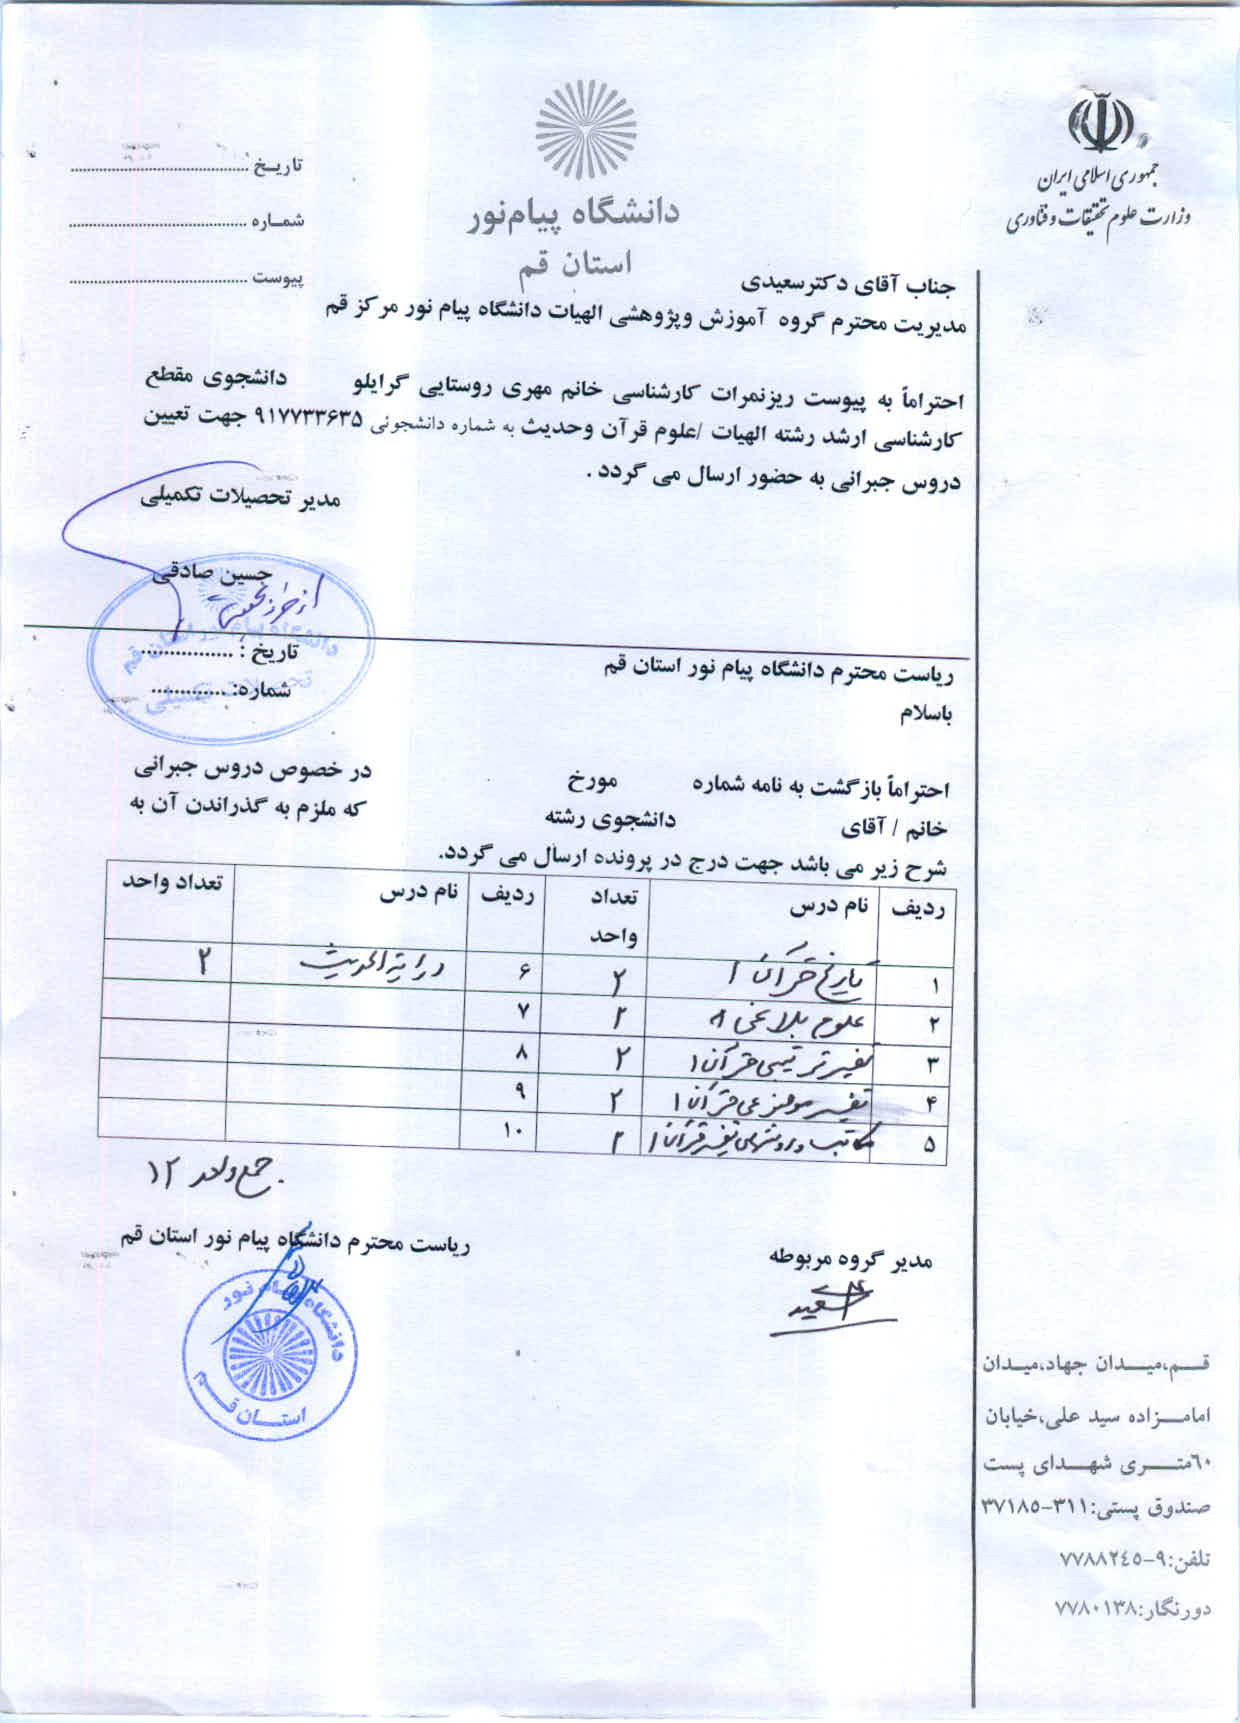 جمهوری اسلامی ایران
وزارت علوم تحقیقات و فناوری
دانشگاه پیام‌نور
استان قم
تاریـخ
شمـاره
پیوست
جناب آقای دکترسعیدی
مدیریت محترم گروه آموزش وپژوهشی الهیات دانشگاه پیام نور مرکز قم
احتراماً به پیوست ریزنمرات کارشناسی خانم مهری روستایی گرایلو دانشجوی مقطع
کارشناسی ارشد رشته الهیات /علوم قرآن وحدیث به شماره دانشجوئی ۹۱۷۷۳۳۶۳۵ جهت تعیین
دروس جبرانی به حضور ارسال می گردد .
مدیر تحصیلات تکمیلی
حسین صادقی
دانشگاه پیام نور استان قم
تحصیلات تکمیلی
تاریخ : ................
شماره: .............
ریاست محترم دانشگاه پیام نور استان قم
باسلام
احتراماً بازگشت به نامه شماره مورخ در خصوص دروس جبرانی
خانم / آقای دانشجوی رشته که ملزم به گذراندن آن به
شرح زیر می باشد جهت درج در پرونده ارسال می گردد.
ردیف نام درس تعداد واحد ردیف نام درس تعداد واحد
۱ تاریخ قرآن ۱ ۲ ۶ درایة الحدیث ۲
۲ علوم بلاغی ۲ ۷
۳ تفسیر ترتیبی قرآن ۱ ۲ ۸
۴ تفسیر موضوعی قرآن ۱ ۲ ۹
۵ مکاتب و روشهای تفسیر قرآن ۱ ۲ ۱۰
جمع واحد ۱۲
مدیر گروه مربوطه
سعیدی
ریاست محترم دانشگاه پیام نور استان قم
دانشگاه پیام نور
استـان قـم
قــم،میــدان جهاد،میدان
امامــزاده سید علی،خیابان
٦٠متــری شهــدای پست
صندوق پستی:۳۱۱-۳۷۱۸۵
تلفن:۹-۷۷۸۸۲٤۵
دورنگار:۷۷۸۰۱۳۸